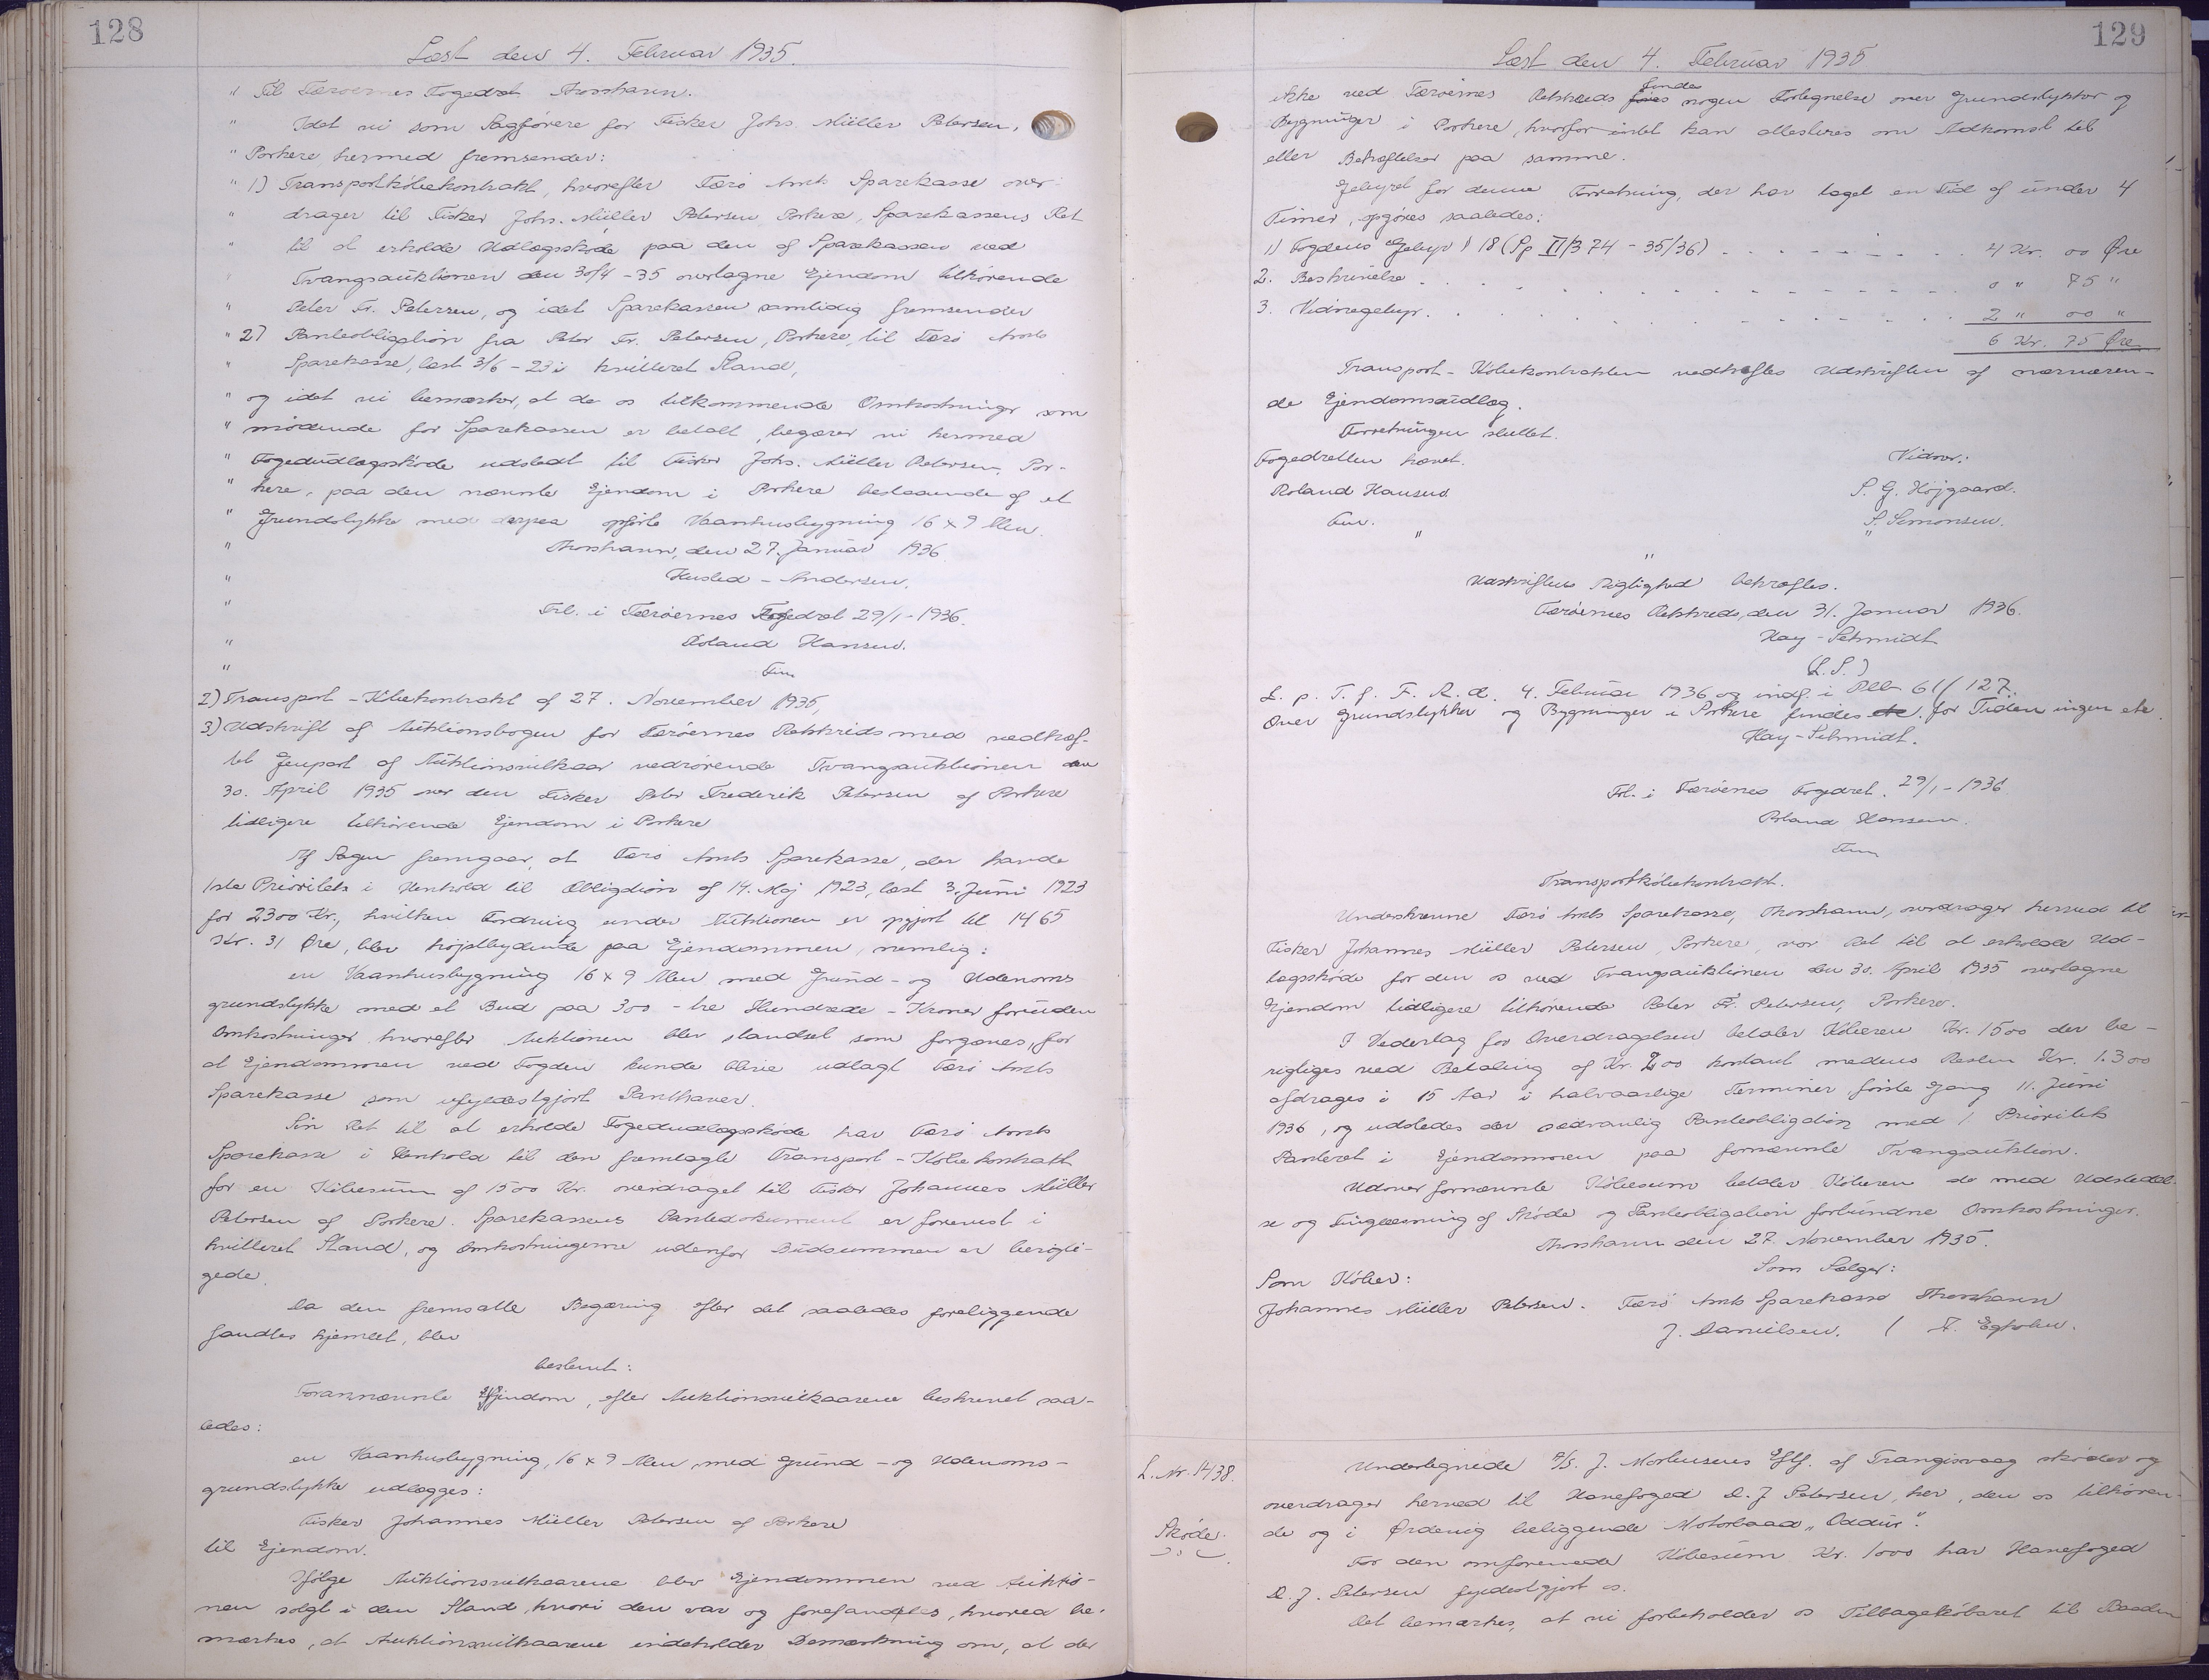 128
Læst den 4. Februar 1935.
" Til Færøernes Fogedret Thorshavn.
" Idet vi som Sagfører for Fisker Johs Müller Petersen,
" Porkere hermed fremsender:
" 1) Transportkøbekontrakt, hvorefter Færø Amts Sparekasse over-
" drager til Fisker Johs. Müller Petersen Porkere, Sparekassens Ret
" til at erholde Udlægsskøde paa den af Sparekassen ved
" Tvangsauktionen den 30/4 -35 overtagne Ejendom tilhørende
" Peter Fr. Petersen, og idet Sparekassen samtidig fremsender
" 2) Panteobligation fra Peter Fr. Petersen, Porkere, til Færø Amts
" Sparekasse, læst 3/6 - 23 i kvitteret Stand,
" og idet vi bemærker, at de os tilkommende Omkostninger som
" mødende for Sparekassen er betalt, begærer vi hermed
" Fogedudlægsskøde udstedt til Fisker Johs. Müller Petersen, Por-
" kere, paa den nævnte Ejendom i Porkere bestaaende af et
" Grundstykke med derpaa opførte Vaanhusbygning 16 x 9 Alen.
" Thorshavn, den 27. Januar 1936
" Husted - Andersen.
" Frl. i Færøernes Fogedret 29/1 - 1936.
" Roland Hansen.
" Fm
2) Transport - Købekontrakt af 27. November 1935,
3) Udskrift af Auktionsbogen for Færøernes Retskreds med vedhæf-
tet Genpart af Auktionsvilkaar vedrørende Tvangsauktionen den
30. April 1935 over den Fisker Peter Frederik Petersen af Porkere
tidligere tilhørende Ejendom i Porkere
Af Sagen fremgaar, at Færø Amts Sparekasse, der havde
1ste Prioritets i Henhold til Obligation af 14. Maj 1923, læst 3. Juni 1923
for 2300 Kr., hvilken Fordring under Auktionen er opgjort til 1465
Kr. 31 Øre, blev højstbydende paa Ejendommen, nemlig:
en Vaanhusbygning 16 x 9 Alen med Grund - og Udenoms
grundstykke med et Bud paa 300 - tre Hundrede - Kroner foruden
Omkostninger hvorefter Auktionen blev standset som forgæves, for
at Ejendommen ved Fogden kunde blive udlagt Færø Amts
Sparekasse som ufyldestgjort Panthaver.
Sin Ret til at erholde Fogedudlægsskøde har Færø Amts
Sparekasse i Henhold til den fremlagte Transport - Købekontrakt
for en Købesum af 1500 Kr. overdraget til Fisker Johannes Müller
Petersen af Porkere. Sparekassens Pantedokument er forevist i
kvitteret Stand, og Omkostningerne udenfor Budsummen er berigti-
gede.
Da den fremsatte Begæring efter det saaledes foreliggende
fandtes hjemlet, blev
bestemt:
Forannævnte Ejendom, efter Auktionsvilkaarene beskrevet saa-
ledes:
en Vaanhusbygning, 16 x 9 Alen med Grund - og Udenoms-
grundstykke udlægges:
Fisker Johannes Müller Petersen af Porkere
til Ejendom.
Ifølge Auktionsvilkaarene blev Ejendommen ved Auktio-
nen solgt i den Stand, hvori den var og forefandtes, hvorved be-
mærkes, at Auktionsvilkaarene indeholder Bemærkning om, at der
129
Læst den 4. Februar 1935
findes
ikke ved Færøernes Retskreds føres nogen Fortegnelse over Grundstykker og
Bygninger i Porkere, hvorfor intet kan attesteres om Adkomst til
eller Behæftelser paa samme.
Gebyret for denne Forretning, der har taget en Tid af under 4
Timer, opgøres saaledes:
1) Fogdens Gebyr § 18 (Sp II/374 - 35/36) . . . 4 Kr. 00 Øre
2. Beskrivelse . . . 0 " 75 "
3. Vidnegebyr. . . . 2 " 00 "
6 Kr. 75 Øre
Transport - Købekontrakten vedhæftes Udskriften af nærværen-
de Ejendomsudlæg.
Forretningen sluttet.
Fogedretten hævet. Vidner:
Roland Hansen. P. G. Højgaard.
Fm. S. Simonsen.
" " "
Udskriftens Rigtighed bekræftes.
Færøernes Retskreds, den 31. Januar 1936.
Hay - Schmidt
(L.S.)
L. p. T. f. F. R. d. 4. Februar 1936 og indf. i Pbb 61/127.
Over Grundstykker og Bygninger i Porkere findes etc. for Tiden ingen etc.
Hay - Schmidt.
Frl. i Færøernes Fogedret. 29/1 - 1936.
Roland Hansen.
Fm
Transportkøbekontrakt.
Underskrevne Færø Amts Sparekasse, Thorshavn, overdrager herved til
Fisker Johannes Müller Petersen, Porkere, vor Ret til at erholde Ud-
lægsskøde for den os ved Tvangsauktionen den 30. April 1935 overtagne
Ejendom tidligere tilhørende Peter Fr. Petersen, Porkere.
I Vederlag for Overdragelsen betaler Køberen Kr. 1500 der be-
rigtiges ved Betaling af Kr. 200 kontant medens Resten Kr. 1.300
afdrages i 15 Aar i halvaarlige Terminer første Gang 11. Juni
1936, og udstedes der sædvanlig Panteobligation med 1. Prioritets
Panteret i Ejendommen paa fornævnte Tvangsauktion.
Udover fornævnte Købesum betaler Køberen de med Udstedel-
se og Tinglæsning af Skøde og Panteobligation forbundne Omkostninger.
Thorshavn den 27. November 1935.
Som Køber: Som Sælger:
Johannes Müller Petersen. Færø Amts Sparekasse Thorshavn
J. Danielsen. / F. Egholm.
L. Nr. 1438.
Skøde.
Undertegnede A/S. J. Mortensens Eftf. af Trangisvaag skøder og
overdrager herved til Havnefoged D. J Petersen, her, den os tilhøren-
de og i Ørdevig beliggende Motorbaad „Oddur".
For den omforenede Købesum Kr. 1000 har Havnefoged
D. J. Petersen fyldestgjort os.
Det bemærkes, at vi forbeholder os Tilbagekøbsret til Baaden